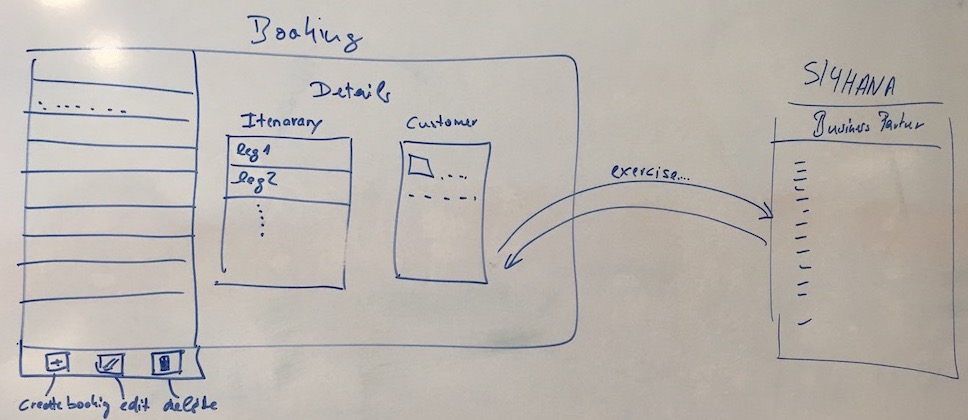 Booking
Details
Itenarary
leg 1
leg 2
Customer
exercise....
S/4HANA
Business Partner
create booking
edit
delete